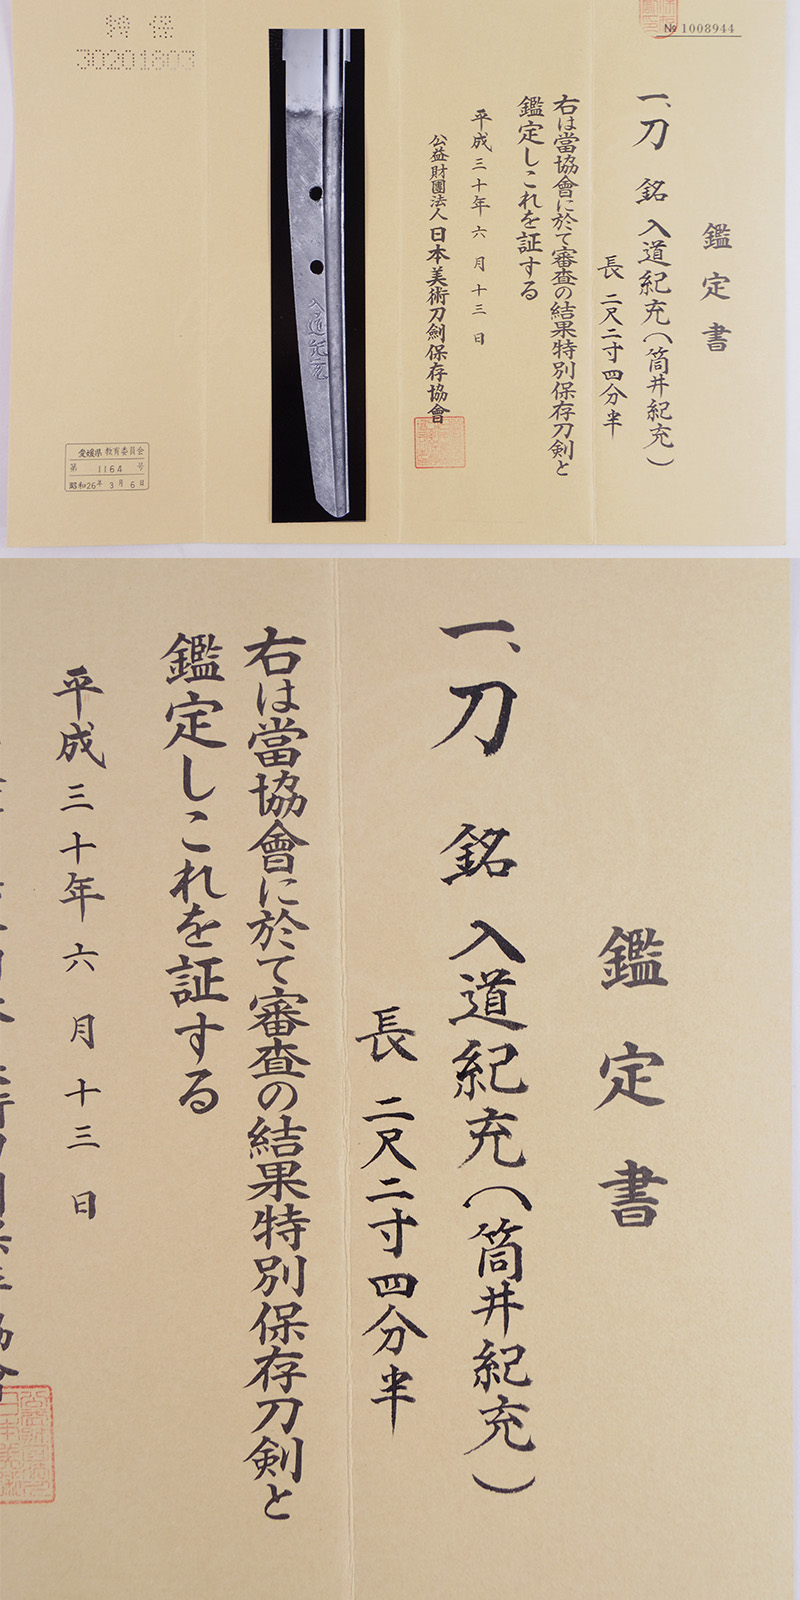 № 1008944
鑑定書
一、刀 銘 入道紀充(筒井紀充)
長 二尺二寸四分半
右は當協會に於て審査の結果特別保存刀剣と
鑑定しこれを証する
平成三十年六月十三日
公益財團法人日本美術刀劍保存協會
入道紀充
特保
30201803
愛媛県教育委員会
第 1164 号
昭和26年3月6日
鑑定書
一、刀 銘 入道紀充(筒井紀充)
長 二尺二寸四分半
右は當協會に於て審査の結果特別保存刀剣と
鑑定しこれを証する
平成三十年六月十三日